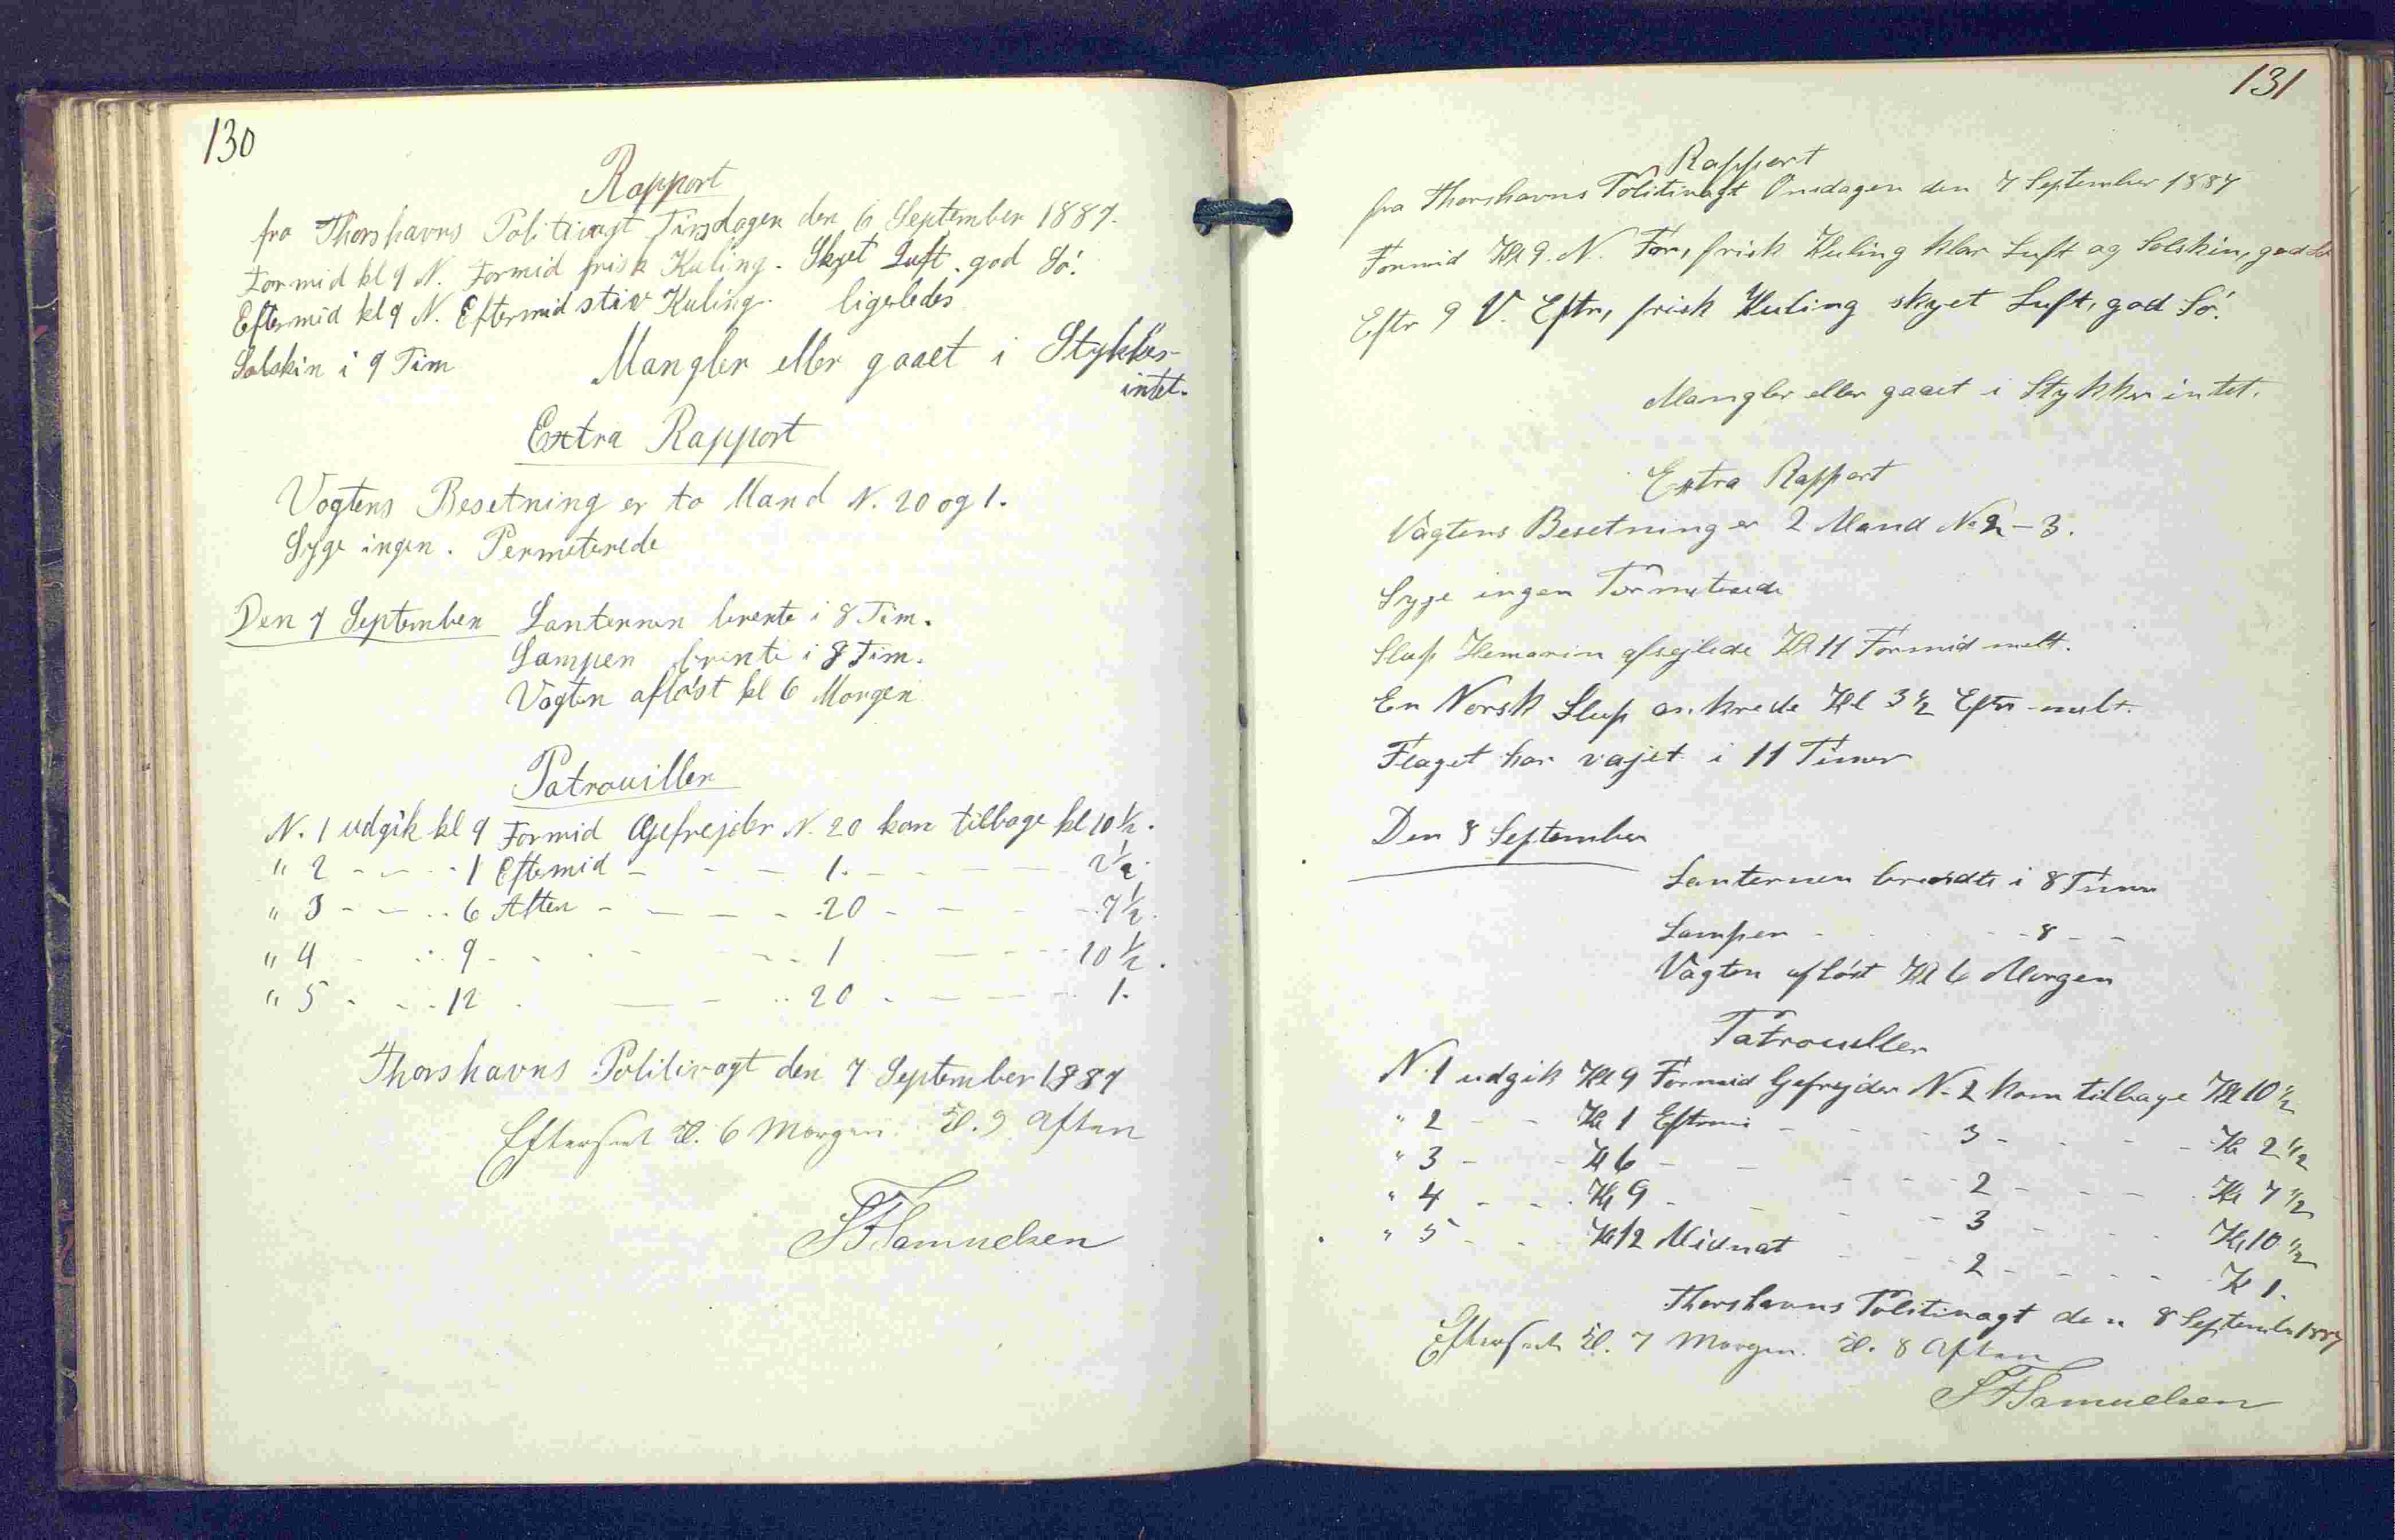 130
Rapport
fra Thorshavns Politivagt Tirsdagen den 6 September 1887.
Formid kl 9 N. Formid frisk Kuling. Skyet Luft. god Sö.
Eftermid kl 9 N. Eftermid stiv Kuling. ligeledes
Solskin i 9 Tim Mangler eller gaaet i Stykker
intet.
Extra Rapport
Vagtens Besetning er to Mand N. 20 og 1.
Syge ingen. Permeterede
Den 7 September Lanternen brente i 8 Tim.
Lampen brente i 8 Tim.
Vagten aflöst kl 6 Morgen
Patrouiller
N. 1 udgik kl 9 Formid Gefrejder N. 20 kom tilbage kl 10 1/2.
" 2 - - - 1 Eftermid - - - 1. - - - 2 1/2.
" 3 - - - 6 Aften - - - - 20 - - - 7 1/2.
" 4 - - 9 - - - - - 1 - - - 10 1/2.
" 5 - - - 12 - - - 20 - - - - 1.
Thorshavns Politivagt den 7 September 1887
Efterseet Kl. 6 Morgen. Kl. 9 Aften
Samuelsen
131
Rapport
fra Thorshavns Politivagt Onsdagen den 7 September 1887
Formid Kl 9. N. For, frisk Kuling klar Luft og Solskin, god Sö
Eftr 9 V. Eftr, frisk Kuling skyet Luft, god Sö.
Mangler eller gaaet i Stykker intet.
Extra Rapport
Vagtens Besetning er 2 Mand N. 2 - 3.
Syge ingen Permeterede
Slup afsejlede Kl 11 Formid melt.
En Norsk Slup ankrede Kl 3 1/2 Eftr melt.
Flaget har vajet i 11 Timer
Den 8 September
Lanternen brendte i 8 Timer
Lampen - - - 8 - -
Vagten aflöst Kl 6 Morgen
Patrouiller
N. 1 udgik Kl 9 Formid Gefrejder N. 2 kom tilbage Kl 10 1/2
" 2 - - Kl 1 Eftermi - - - 3 - - - - Kl 2 1/2
" 3 - - Kl 6 - - - - - 2 - - - Kl 7 1/2
" 4 - - Kl 9 - - - - 3 - - - Kl 10 1/2
" 5 - - Kl 12 Midnat - - - 2 - - - - Kl 1.
Thorshavns Politivagt den 8 September 1887
Efterseet Kl. 7 Morgen. Kl. 8 Aften
Samuelsen